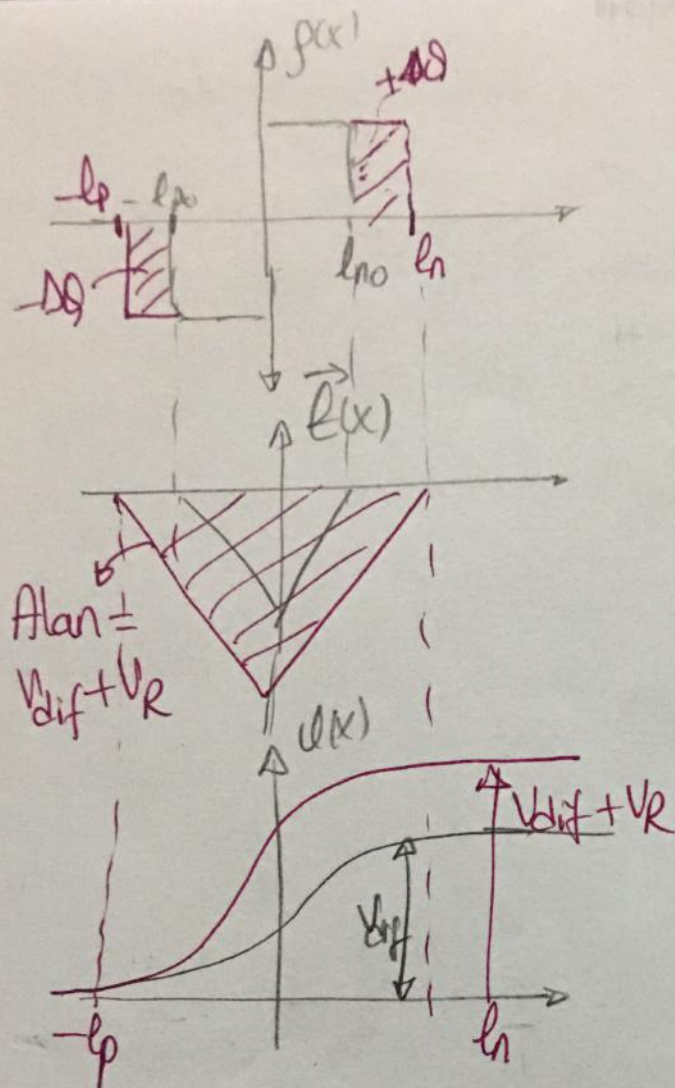 ρ(x)
+ΔQ
-lp
-lpo
lno
ln
-ΔQ
E(x)
Alan =
Vdif + VR
φ(x)
Vdif + VR
Vdif
-lp
ln